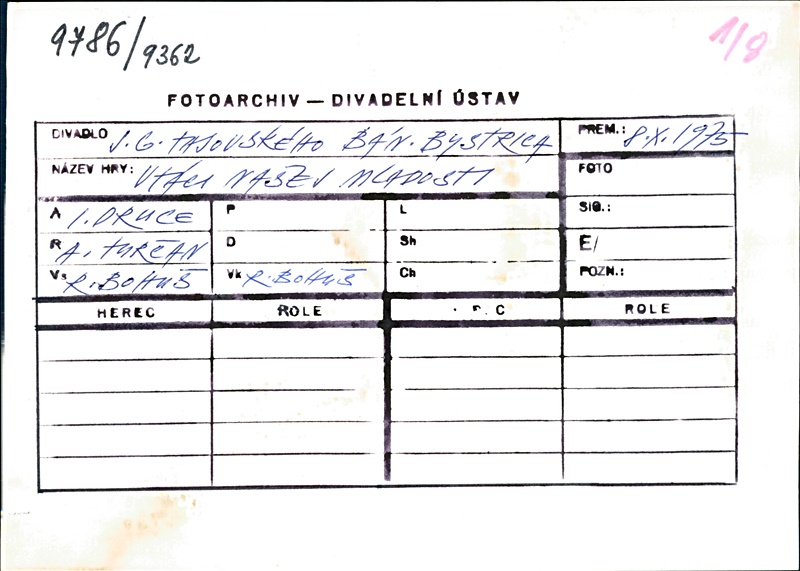 9786/9362
1/8
FOTOARCHIV — DIVADELNÍ ÚSTAV
DIVADLO J. G. TAJOVSKÉHO BÁN. BYSTRICA PREM.: 8.X.1975
NÁZEV HRY: VTÁCI NAŠEJ MLADOSTI FOTO
A I. DRUCE P L SIG.:
R A. TURČAN D Sh E/
Vs R. BOHUŠ Vk R. BOHUŠ Ch POZN.:
HEREC ROLE ROLE